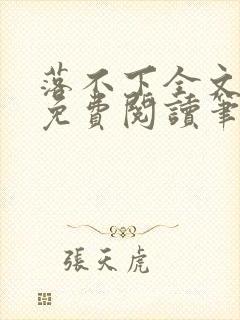 落不下全文
免費閱讀筆
張天虎